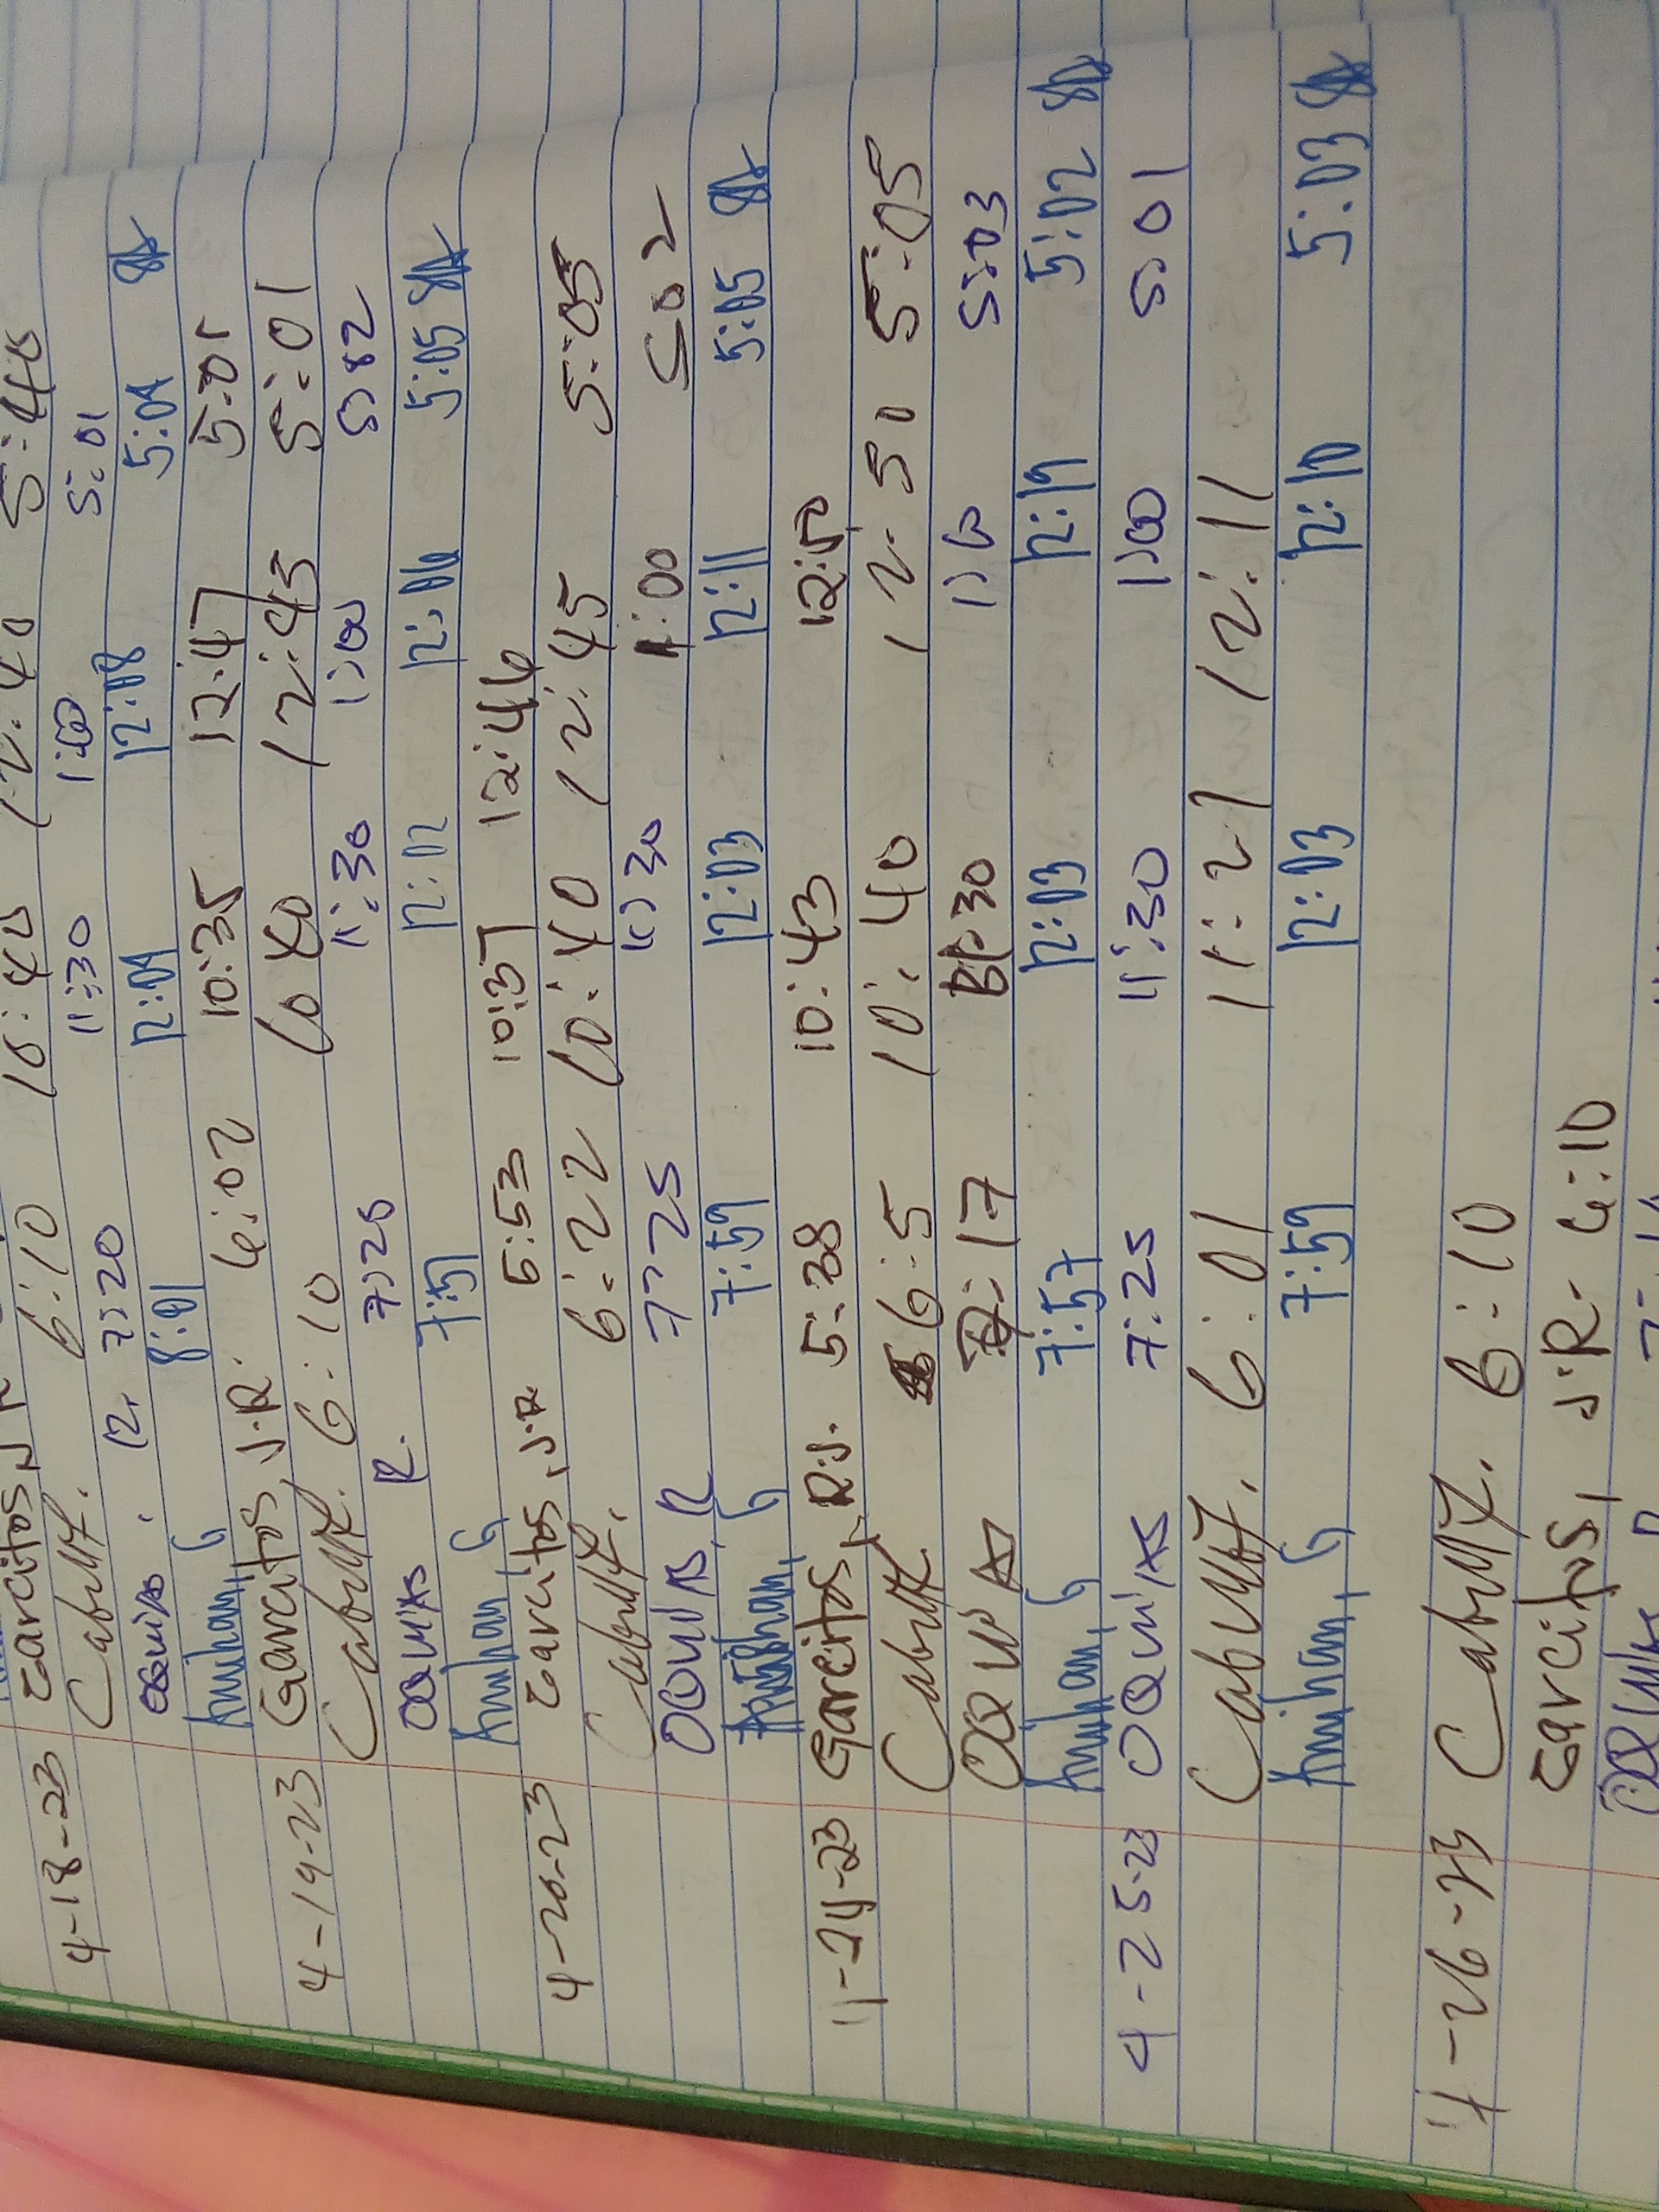 4-18-23 Garcitos, J.R. 5:40
Cabutz. 6:10 10:40 12:40
OQuias. R. 7:20 11:30 1:00 5:01
Amihan, G 8:01 12:04 12:08 5:04
4-19-23 Garcitos, J.R. 6:02 10:35 12:47 5:01
6:10 10 40 12:45 5:01
OQUIAS R. 7:25 11:30 1:00 5:02
Amihan, G 7:59 12:02 12:06 5:05
4-20-23 Garcitos, J.R. 5:53 10:37 12:46
6:22 10:40 12:45 5:05
OQUIAS, R 7:25 11:30 1:00 5:02
Amihan, G 7:59 12:03 12:11 5:05
4-24-23 Garcitos, R.J. 5:38 10:43 12:50
6:5 10:40 12:50 5:05
OQUIAS 7:17 11:30 1:00 5:03
Amihan, G 7:57 12:03 12:19 5:02
4-25-23 OQUIAS 7:25 11:30 1:00 5:01
6:01 11:21 12:11
Amihan, G 7:59 12:03 12:10 5:03
4-26-23 6:10
Garcitos, J.R. 6:10